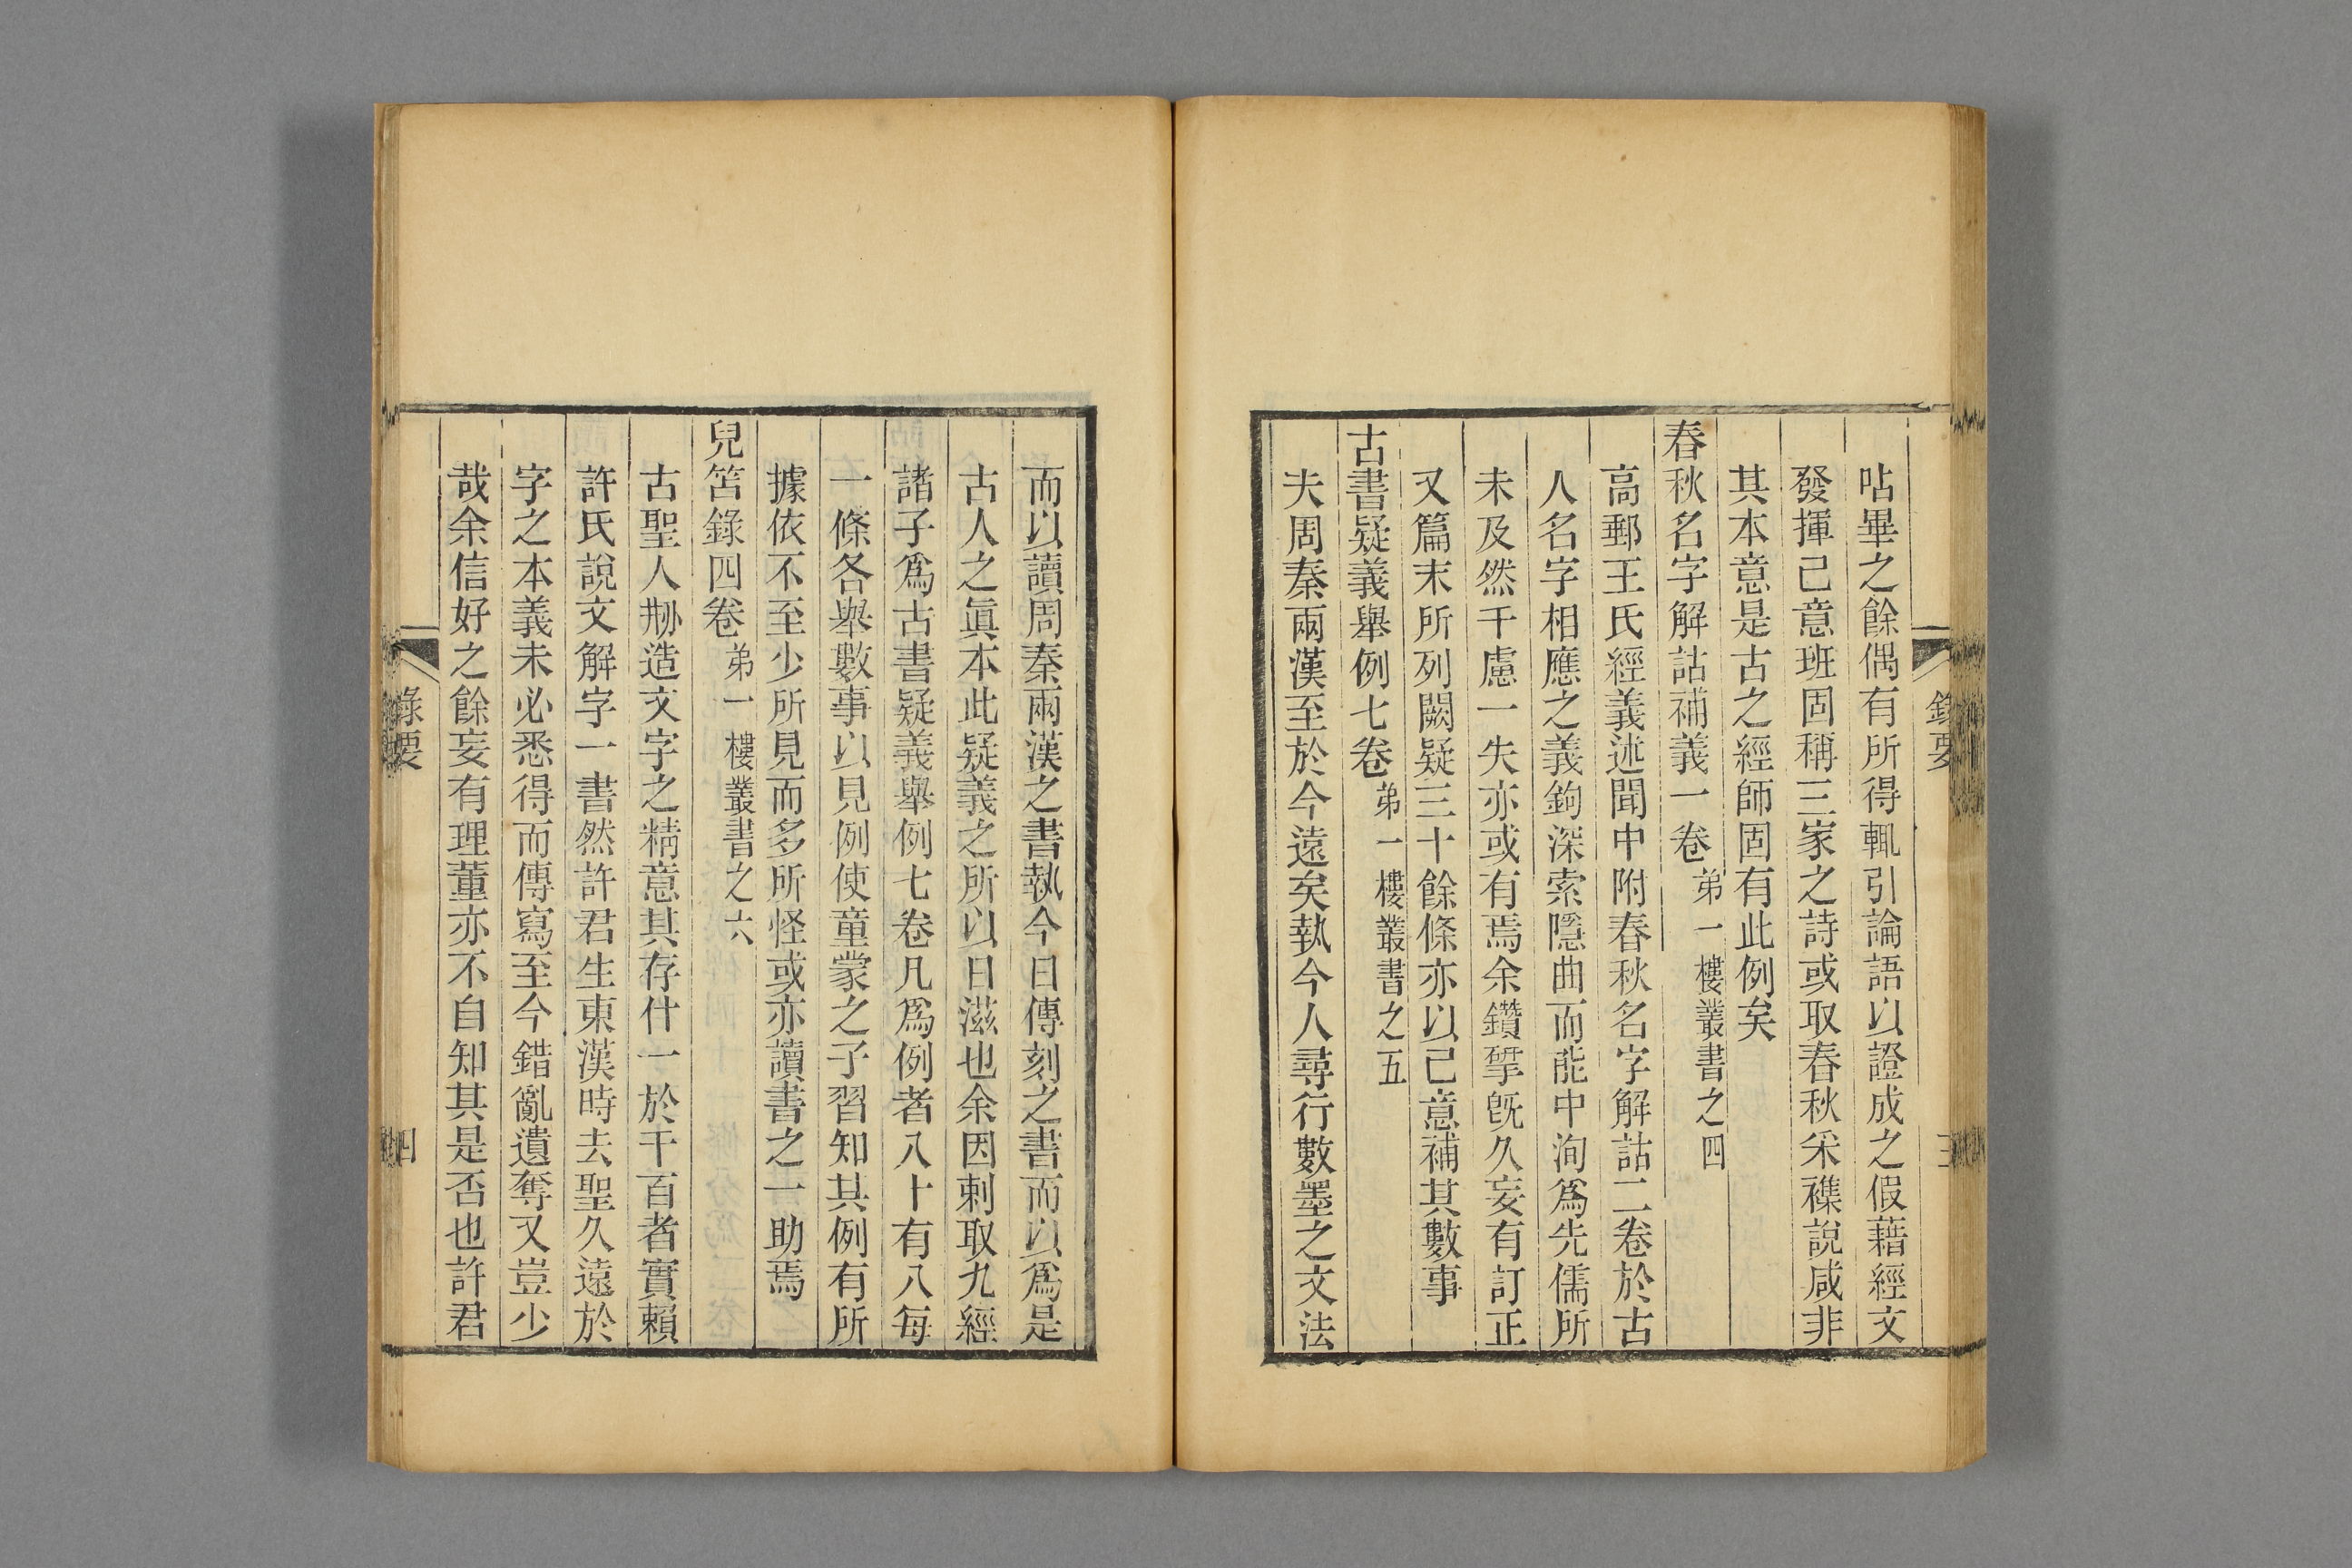 呫畢之餘偶有所得輒引論語以證成之假藉經文
發揮己意班固稱三家之詩或取春秋采襍說咸非
其本意是古之經師固有此例矣
春秋名字解詁補義一卷弟一樓叢書之四
高郵王氏經義述聞中附春秋名字解詁二卷於古
人名字相應之義鉤深索隱曲而能中洵爲先儒所
未及然千慮一失亦或有焉余鑽揅旣久妄有訂正
又篇末所列闕疑三十餘條亦以己意補其數事
古書疑義舉例七卷弟一樓叢書之五
夫周秦兩漢至於今遠矣執今人尋行數墨之文法
錄要
三
而以讀周秦兩漢之書執今日傳刻之書而以爲是
古人之眞本此疑義之所以日滋也余因刺取九經
諸子爲古書疑義舉例七卷凡爲例者八十有八每
一條各舉數事以見例使童蒙之子習知其例有所
據依不至少所見而多所怪或亦讀書之一助焉
兒笘錄四卷弟一樓叢書之六
古聖人刱造文字之精意其存什一於千百者實賴
許氏說文解字一書然許君生東漢時去聖久遠於
字之本義未必悉得而傳寫至今錯亂遺奪又豈少
哉余信好之餘妄有理董亦不自知其是否也許君
錄要
四